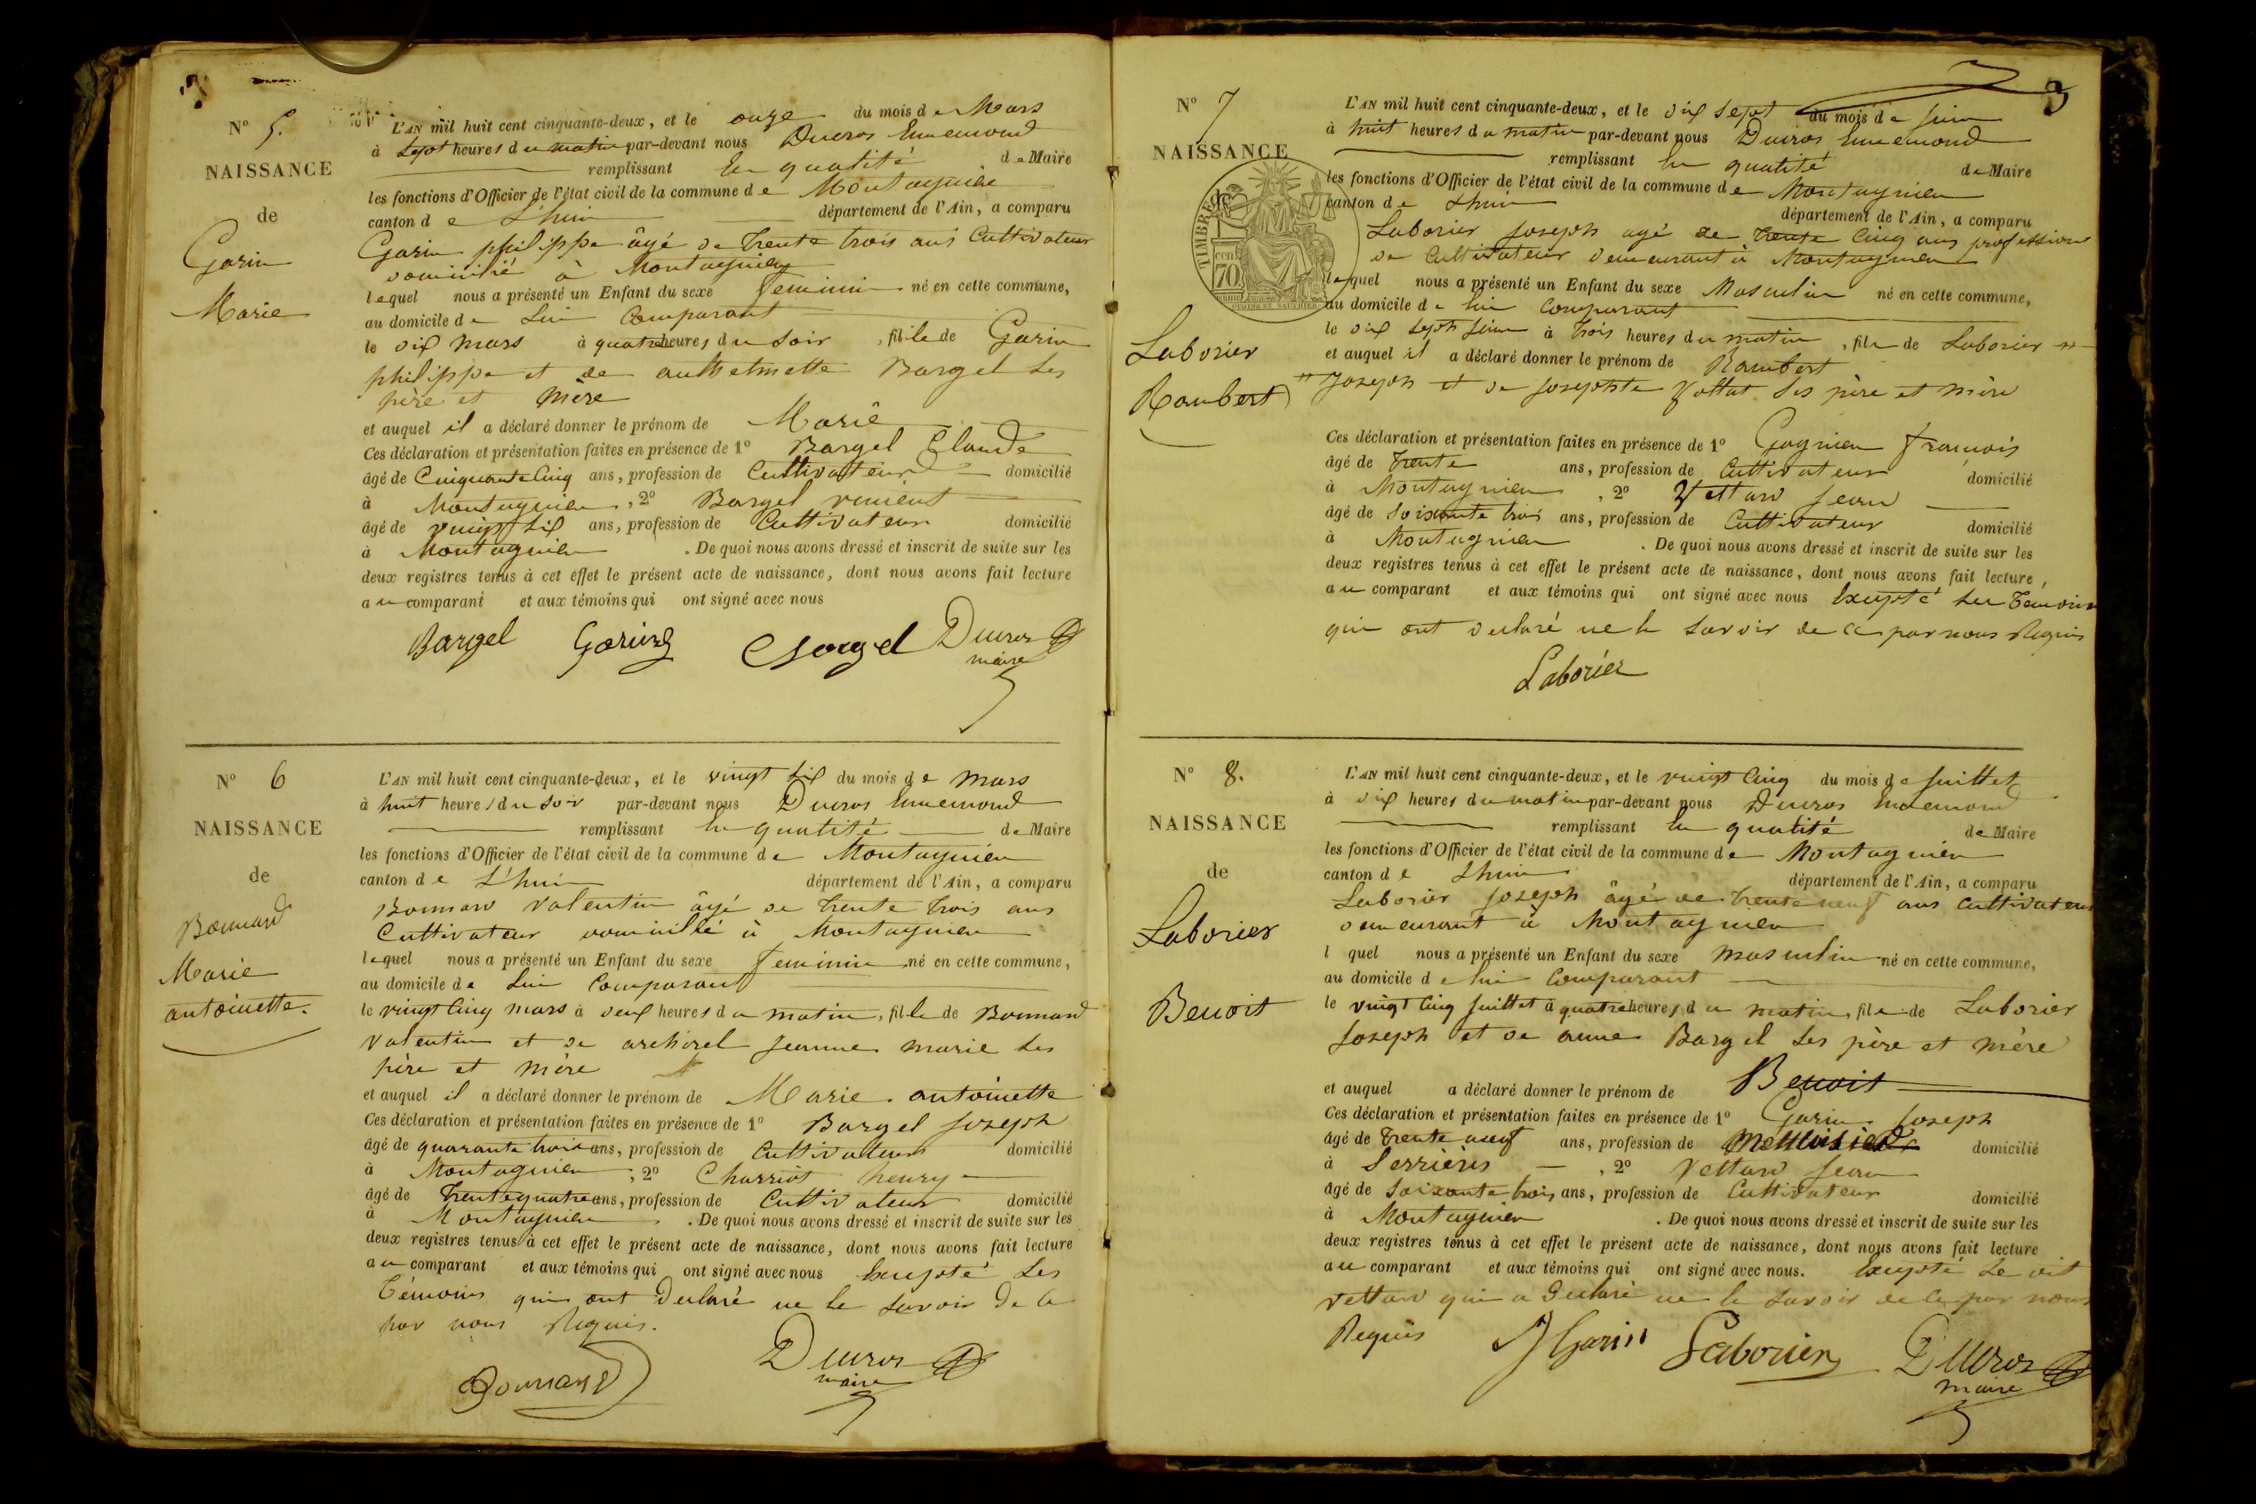 N° 5.
NAISSANCE
de
Garin
Marie
L'AN mil huit cent cinquante-deux, et le onze du mois de Mars
à Sept heures du matin par-devant nous Ducros Ennemond
remplissant En qualité de Maire
les fonctions d'Officier de l'état civil de la commune de Montagnieu
canton de L'huis département de l'Ain, a comparu
Garin philippe âgé de Trente trois ans Cultivateur
domicilié à Montagnieu
lequel nous a présenté un Enfant du sexe feminin né en cette commune,
au domicile de Lui Comparant
le dix mars à quatre heures du soir, fille de Garin
philippe et de anthelmette Bargel Ses
père et mère
et auquel il a déclaré donner le prénom de Marie
Ces déclaration et présentation faites en présence de 1° Bargel Claude
âgé de Cinquante Cinq ans, profession de Cultivateur domicilié
à Montagnieu, 2° Bargel vincent
âgé de vingt six ans, profession de Cultivateur domicilié
à Montagnieu. De quoi nous avons dressé et inscrit de suite sur les
deux registres tenus à cet effet le présent acte de naissance, dont nous avons fait lecture
au comparant et aux témoins qui ont signé avec nous
Bargel Garin Bargel Ducros
maire
N° 6
NAISSANCE
de
Bonnard
Marie
antoinette.
L'AN mil huit cent cinquante-deux, et le vingt six du mois de mars
à huit heures du soir par-devant nous Ducros Ennemond
remplissant En qualité de Maire
les fonctions d'Officier de l'état civil de la commune de Montagnieu
canton de L'huis département de l'Ain, a comparu
Bonnard Valentin âgé de trente trois ans
Cultivateur domicilié à Montagnieu
lequel nous a présenté un Enfant du sexe feminin né en cette commune,
au domicile de Lui Comparant
le vingt Cinq mars à deux heures du matin, fille de Bonnard
Valentin et de jeanne marie Ses
père et mère
et auquel il a déclaré donner le prénom de Marie antoinette
Ces déclaration et présentation faites en présence de 1° Bargel joseph
âgé de quarante trois ans, profession de Cultivateur domicilié
à Montagnieu, 2° Charriot henry
âgé de Trente quatre ans, profession de Cultivateur domicilié
à Montagnieu. De quoi nous avons dressé et inscrit de suite sur les
deux registres tenus à cet effet le présent acte de naissance, dont nous avons fait lecture
au comparant et aux témoins qui ont signé avec nous Excepté Les
Témoins qui ont Déclaré ne le savoir De ce
par nous Requis.
Bonnard Ducros
maire
3
N° 7
NAISSANCE
TIMBRE
70
Laborier
Rambert
L'AN mil huit cent cinquante-deux, et le dix sept du mois de juin
à huit heures du matin par-devant nous Ducros Ennemond
remplissant En qualité de Maire
les fonctions d'Officier de l'état civil de la commune de Montagnieu
canton de Lhuis département de l'Ain, a comparu
Laborier joseph agé de trente Cinq ans profession
de Cultivateur demeurant à Montagnieu
lequel nous a présenté un Enfant du sexe Masculin né en cette commune,
au domicile de lui Comparant
le dix sept juin à trois heures du matin, fils de Laborier
et auquel il a déclaré donner le prénom de Rambert
joseph et de josephte Ses père et mère
Ces déclaration et présentation faites en présence de 1° Gagnieu françois
âgé de Trente ans, profession de Cultivateur domicilié
à Montagnieu, 2° Vettard jean
âgé de soixante trois ans, profession de Cultivateur domicilié
à Montagnieu. De quoi nous avons dressé et inscrit de suite sur les
deux registres tenus à cet effet le présent acte de naissance, dont nous avons fait lecture,
au comparant et aux témoins qui ont signé avec nous Excepté Les Temoins
qui ont declaré ne le savoir de ce par nous Requis
Laborier
N° 8.
NAISSANCE
de
Laborier
Benoit
L'AN mil huit cent cinquante-deux, et le vingt Cinq du mois de juillet
à dix heures du matin par-devant nous Ducros Ennemond
remplissant En qualité de Maire
les fonctions d'Officier de l'état civil de la commune de Montagnieu
canton de Lhuis département de l'Ain, a comparu
Laborier joseph âgé de trente neuf ans Cultivateur
demeurant à Montagnieu
l quel nous a présenté un Enfant du sexe masculin né en cette commune,
au domicile de lui Comparant
le vingt Cinq juillet à quatre heures du matin, fils de Laborier
joseph et de anne Bargel Ses père et mère
et auquel a déclaré donner le prénom de Benoit
Ces déclaration et présentation faites en présence de 1° Garin joseph
âgé de Trente neuf ans, profession de domicilié
à Serrières, 2° Vettard jean
âgé de Soixante trois ans, profession de Cultivateur domicilié
à Montagnieu. De quoi nous avons dressé et inscrit de suite sur les
deux registres tenus à cet effet le présent acte de naissance, dont nous avons fait lecture
au comparant et aux témoins qui ont signé avec nous. Excepté Le dit
vettard qui a Declaré ne le savoir de ce par nous
Requis J Garin Laborier Ducros
maire